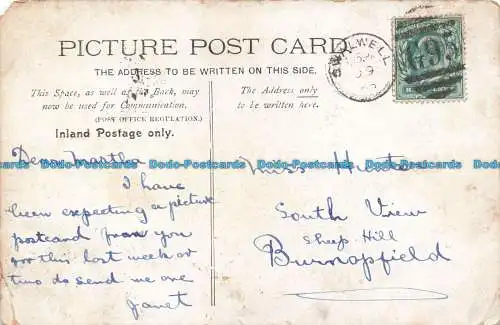 PICTURE POST CARD.
THE ADDRESS TO BE WRITTEN ON THIS SIDE.
This Space, as well as the Back, may
now be used for Communication.
(POST OFFICE REGULATION.)
Inland Postage only.
The Address only
to be written here.
SWALWELL
Dear Martha
I have
been expecting a picture
postcard from you
for this last week or
two do send me one
Janet
Miss Hunter
South View
Sheep Hill
Burnopfield
Dodo-Postcards Dodo-Postcards Dodo-Postcards